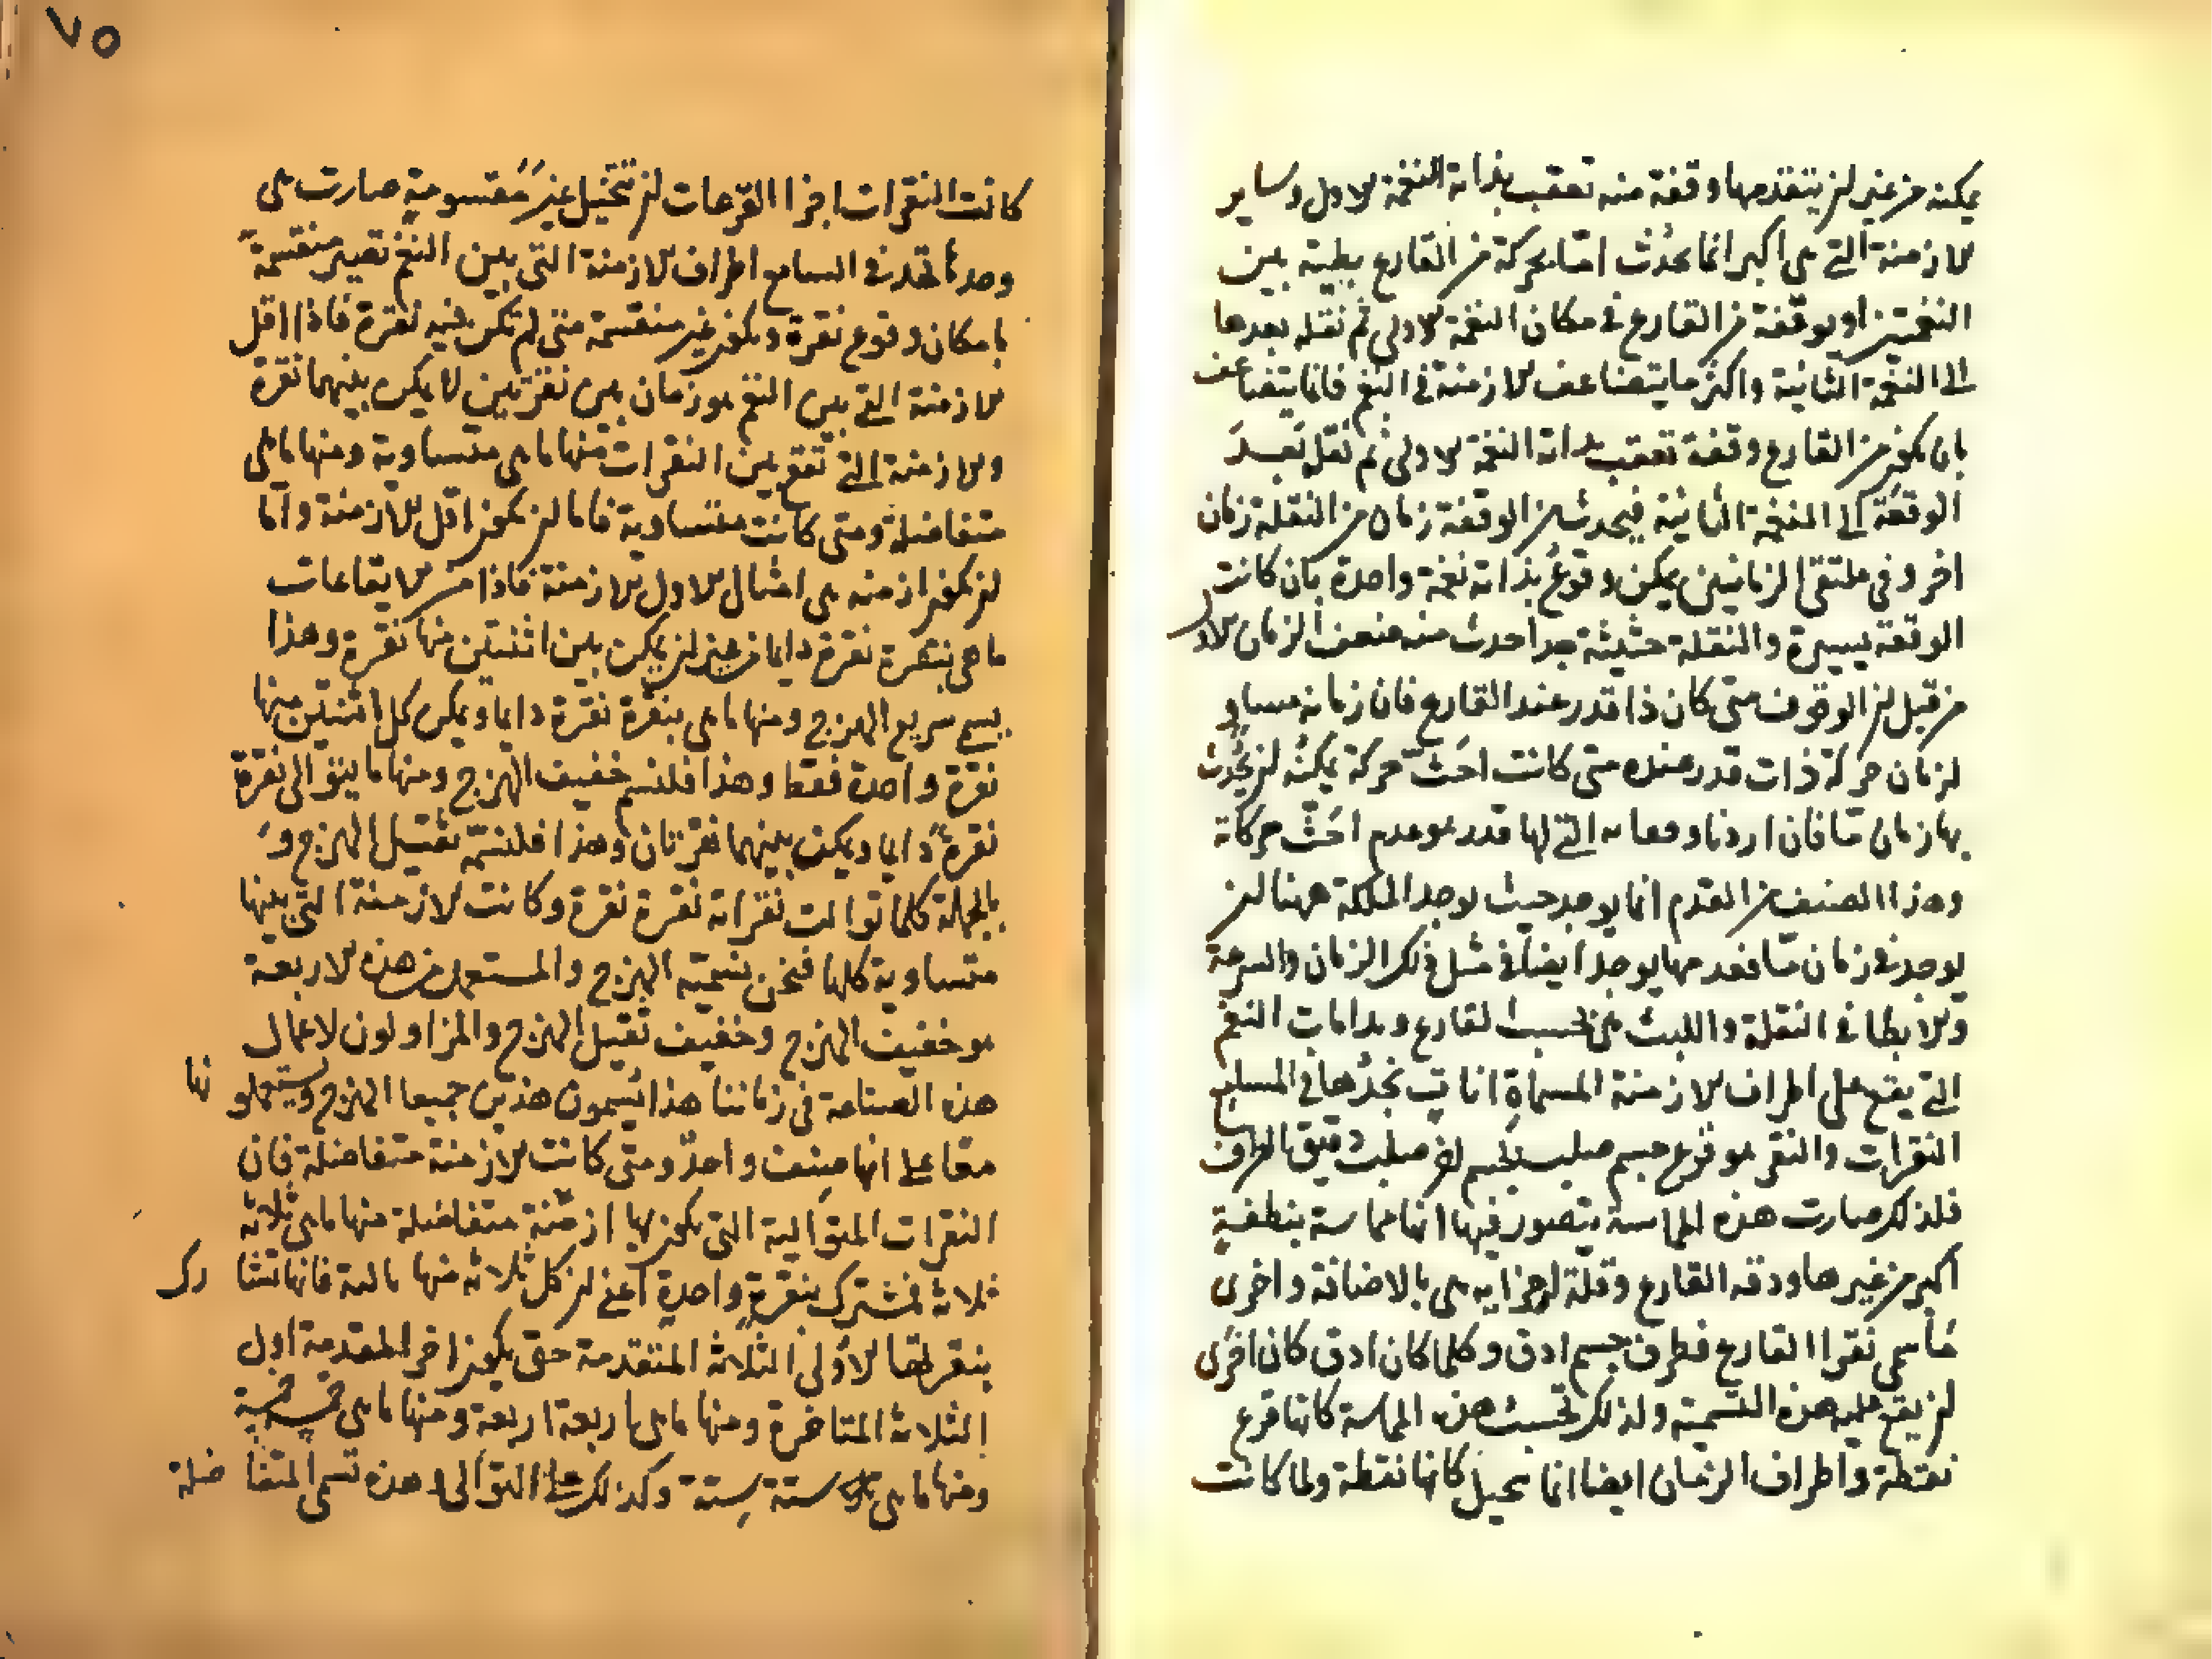 يمكنه من غير ان يتقدمها وقفة منه تعقب بداية النغمة الاول وساير
الازمنة التي هي اكبر انما يحدث اما بحركة من القارع بطيئة بين
النغمتين او بوقفة من القارع في مكان النغمة الاولى ثم نقله بعدها
الى النغمة الثانية واكثر ما يتضاعف الازمنة في النغم فانما يتضاعف
بان يكون من القارع وقفة تعقب بداية النغمة الاولى ثم نقل بعد
الوقفة الى النغمة الثانية فيحدث من الوقفة زمان من النقلة زمان
اخر وفي ملتقى الزمانين يمكن وقوع بداية نغمة واحدة بان كانت
الوقفة يسيرة والنقلة حثيثة جدا حدث منه ضعف الزمان الاول
من قبل ان الوقوف متى كان ذا قدر عند القارع فان زمانه مساو
لزمان حركة ذات قدر عنده متى كانت احث حركة يمكنه ان يحدث
بها زمان ما فان اردنا وفعاته التي لها قدر هو عدم احث حركاته
وهذا الصنف من القدم انما يوجد حيث يوجد الملكة ههنا لمن
يوجد في زمان ما فقدمها يوجد ايضا في مثل ذلك الزمان والسرعة
والابطا في النقلة واللبث هي بحسب القارع وبدايات النغم
التي يقع على اطراف الازمنة المسماة انا قب نجدها في المسامع
النقرات والنقر هو قرع جسم صلب بجسم اخر صلب دقيق الطرف
فلذلك صارت هذه المماسة يتصور فيها انها مماسة بنطفة
اكبر من غيرها ودقه القارع وقلة اجزايه هي بالاضافة واخرى
ما سمي نقرا القارع فطرف جسم ادق وكلما كان ادق كان احرى
ان يقع عليه هذه التسمية ولذلك تحسب هذه المماسة كانها قرع
نقطة واطراف الزمان ايضا انما تخيل كانها نقطة ولما كانت
٧٥
كانت النقرات احدا القرعات ان تتخيل غير مقسومة صارت هي
وحدها تحد في السامع اطراف الازمنة التي بين النغم تصير منقسمة
بامكان وقوع نقرة ويكون غير منقسمة متى لم يكن فيه نقرة فاذا اقل
الازمنة التي بين النغم هو زمان بين نقرتين لا يمكن بينهما نقرة
والازمنة التي تقع بين النقرات منها ما هي متساوية ومنها ما هي
متفاضلة ومتى كانت متساوية فاما ان يكون اقل الازمنة واما
ان يكون ازمنه هي امثال الاول الازمنة فاذا من الايقاعات
ما هي بنقرة نقرة دايما من غير ان يمكن بين اثنتين منها نقرة وهذا
يسمى سريع الهزج ومنها ما هي بنقرة نقرة دايما ويمكن كل اثنتين منها
نقرة واحدة فقط وهذا فلنسم خفيف الهزج ومنها ما يتوالى نقرة
نقرة دايما ويمكن بينهما نقرتان وهذا فلنسمه ثقيل الهزج و
بالجملة كلما توالت نقراته نقرة نقرة وكانت الازمنة التي بينها
متساوية كلها فنحن نسميه الهزج والمستعمل من هذه الاربعة
هو خفيف الهزج وخفيف ثقيل الهزج والمزاولون لاعمال
هذه الصناعة في زماننا هذا يسمون هذين جميعا الهزج ويستعملونها
معا على انها صنف واحد ومتى كانت الازمنة متفاضلة فان
النقرات المتوالية التي يكون لها ازمنة متفاضلة منها ما هي ثلاثة
ثلاثة فمشترك بنقرة واحدة اعني ان كل ثلاثه منها تالية فانها تشارك
بنقرتها الاولى الثلاثة المتقدمة حتى يكون اخر المقدمة اول
الثلاثة المتاخرة ومنها ما هي اربعة اربعة ومنها ما هي خمسة خمسة
ومنها ما هي ستة ستة وكذلك على التوالى وهذه تسمى المتفاضلة